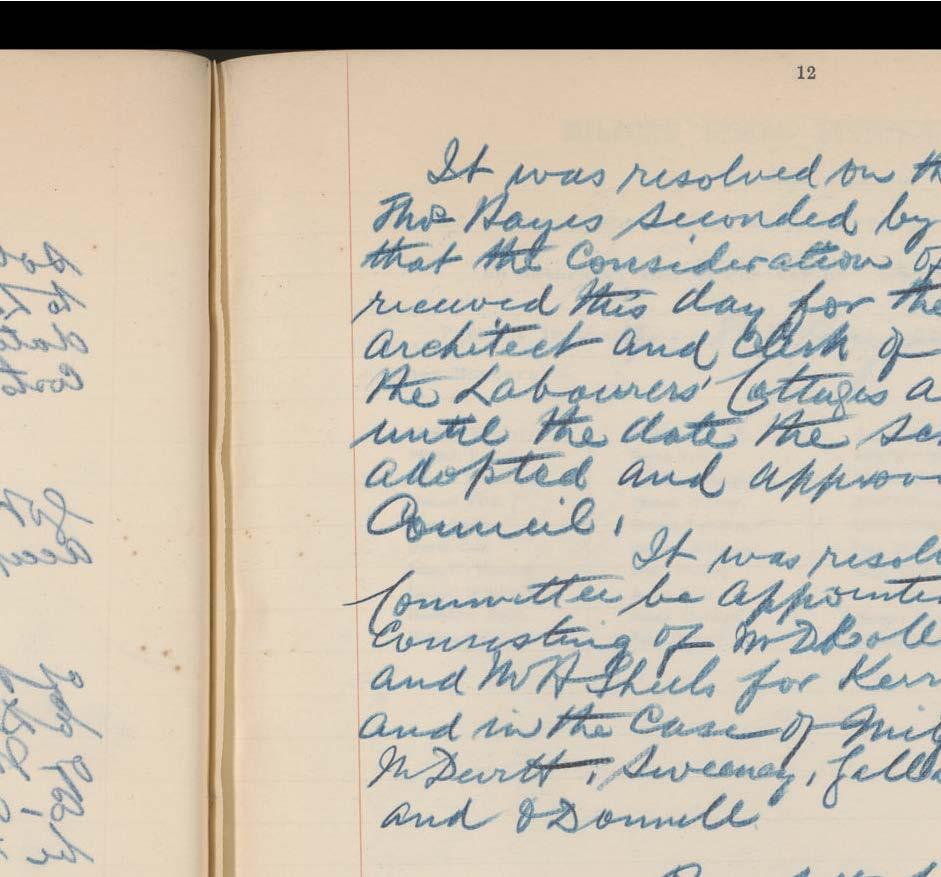 12
It was resolved on th
Thos Hayes seconded by
that the Consideration of
received this day for the
Architect and Clerk of
the Labourers' Cottages a
until the date the sa
adopted and approv
Council.
It was resol
Committee be appointe
Consisting of Mr D
and Mr H Sheils for Kerr
and in the Case of
McDevitt, Sweeney, Galla
and O'Donnell